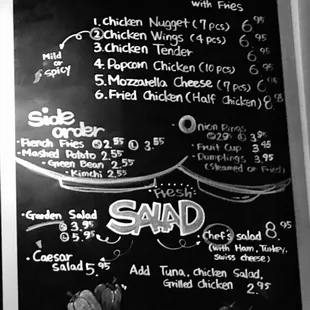 with Fries
1. Chicken Nugget (7 pcs) 6.95
2 Chicken Wings (4 pcs) 6.95
Mild or Spicy
3. Chicken Tender 6.95
4. Popcorn Chicken (10 pcs) 6.95
5. Mozzarella Cheese (7 pcs) 6.95
6. Fried Chicken (Half Chicken) 8.95
Side order
• French Fries S 2.55 L 3.55
• Mashed Potato 2.55
• Green Bean 2.55
• Kimchi 2.55
Onion Rings
• Fruit Cup 3.45
• Dumplings 3.95
(Steamed or Fried)
• Fresh •
SALAD
• Garden Salad
S 3.95
L 5.95
• Caesar Salad 5.95
Chef's salad 8.95
(with Ham, Turkey, Swiss cheese)
Add Tuna, chicken Salad,
Grilled chicken 2.95